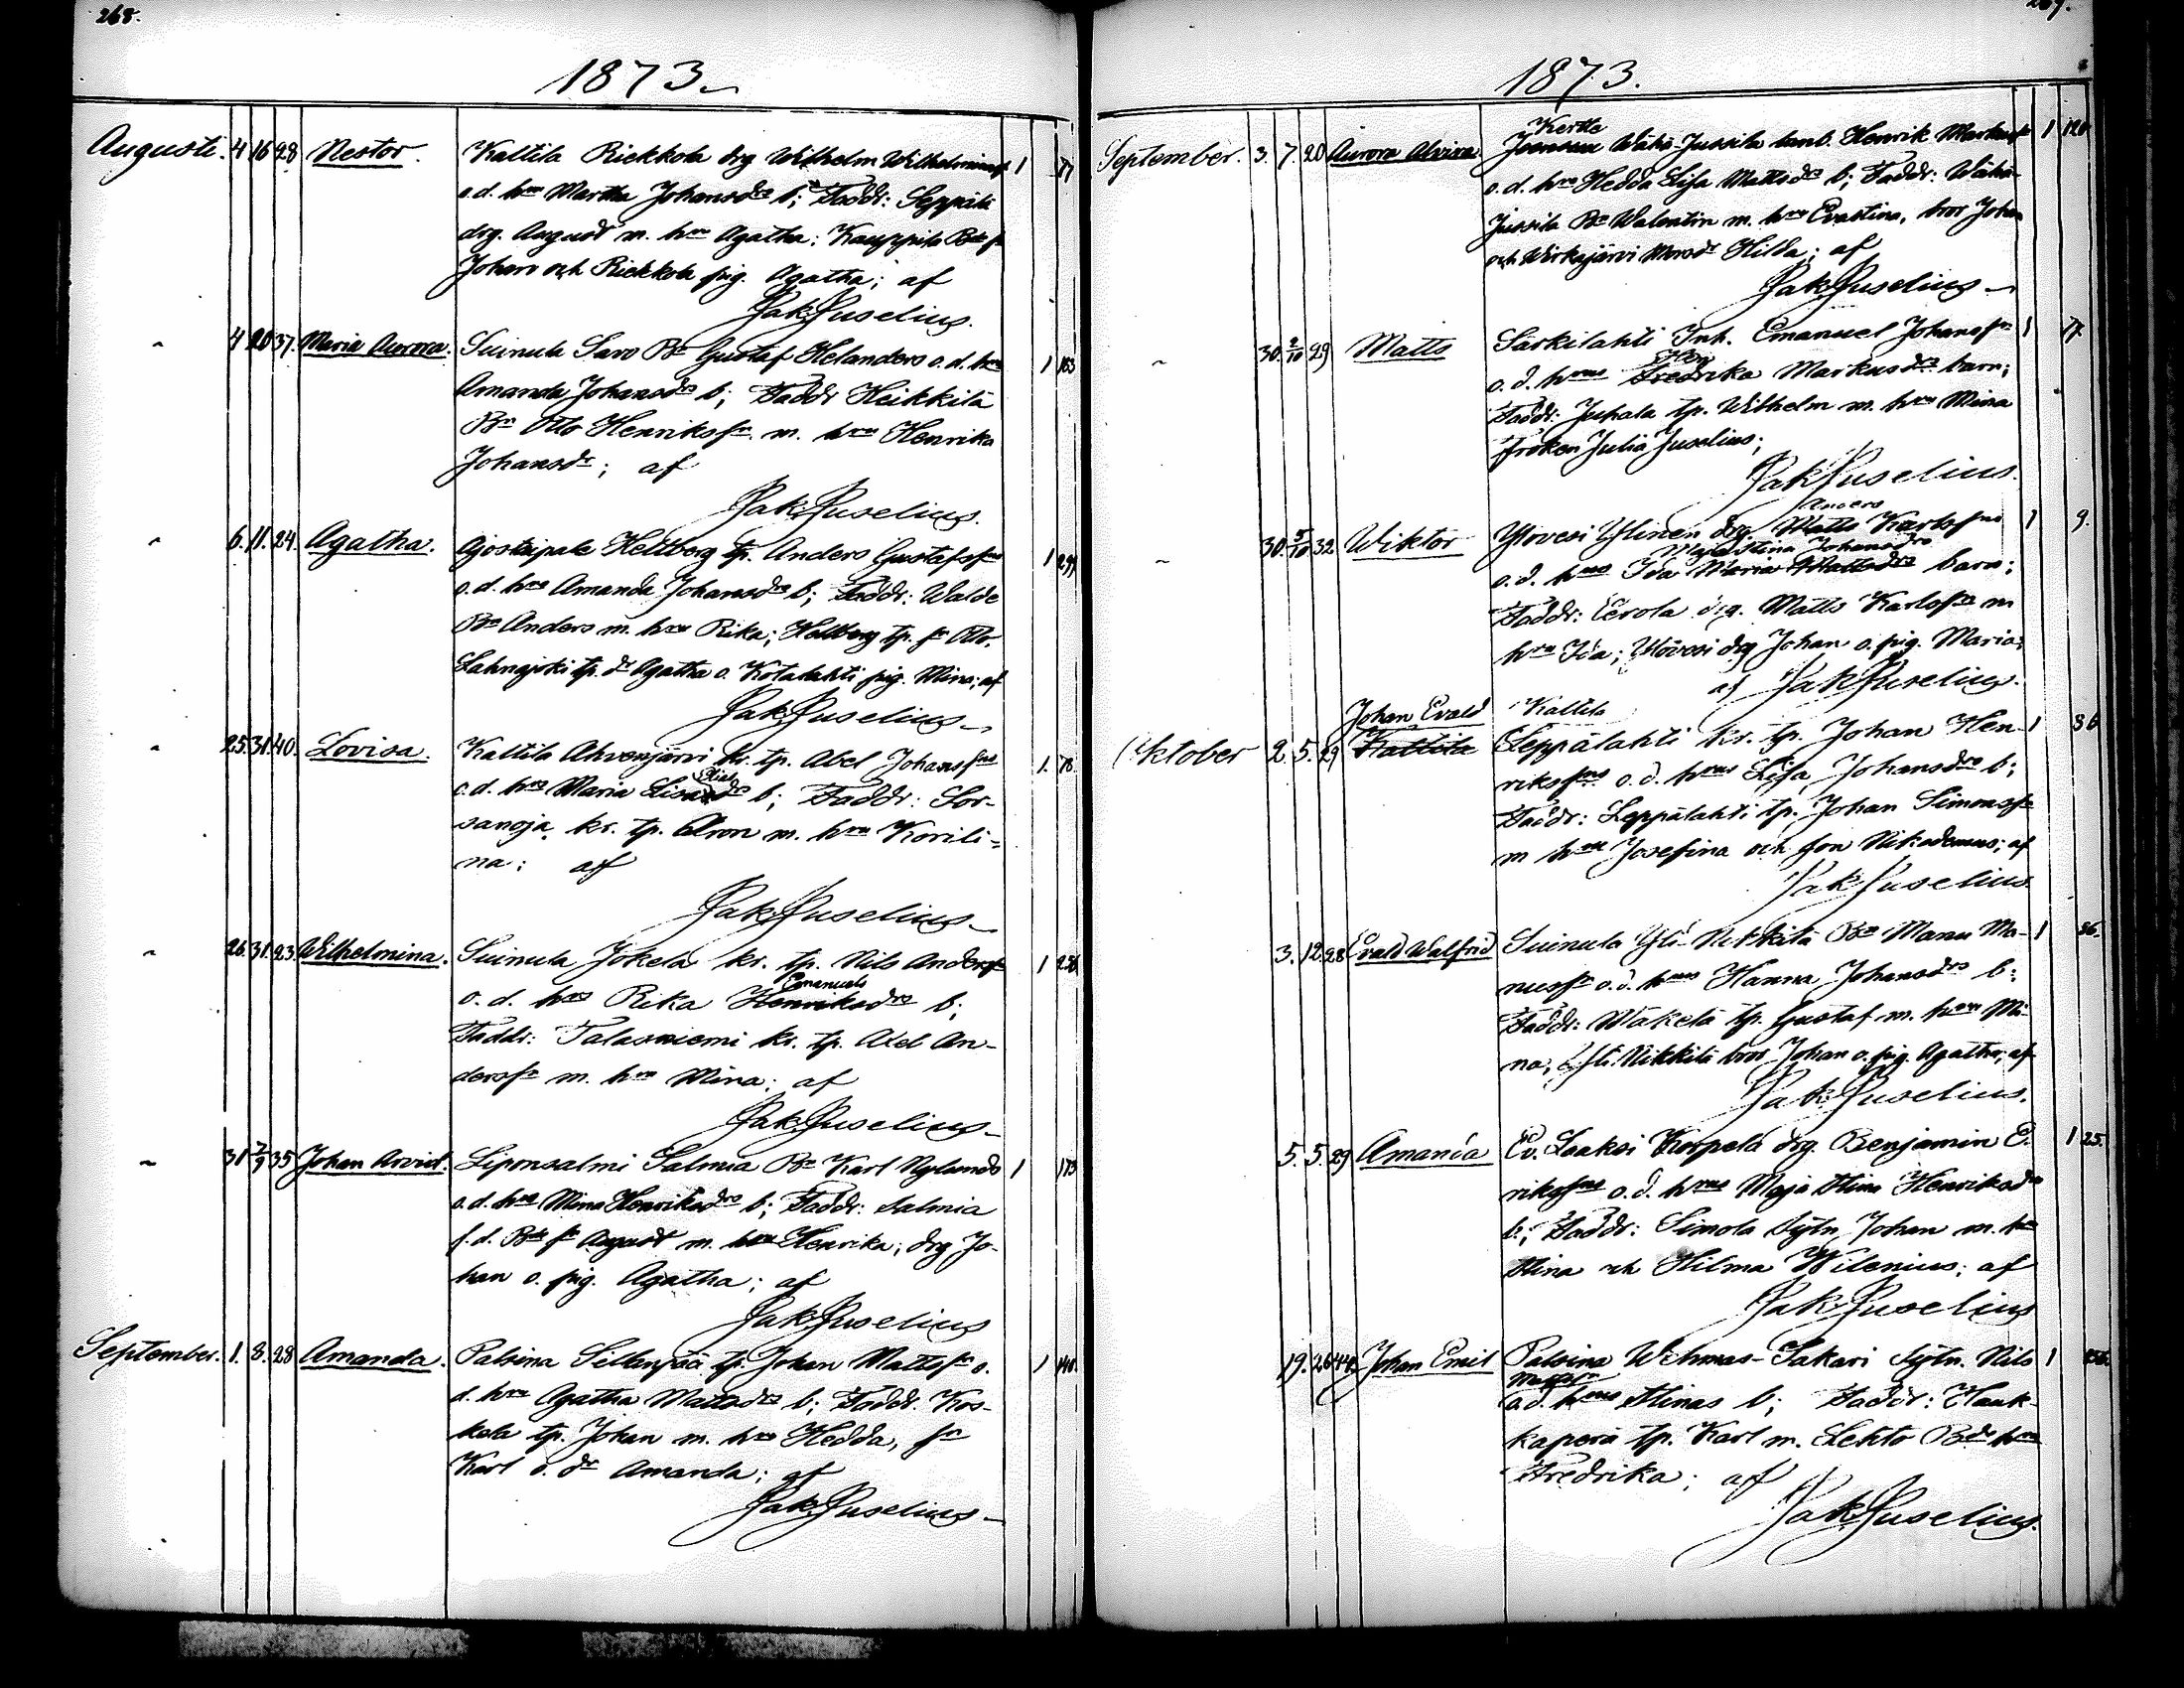 268.
1873.
Augusti. 4 16 28 Nestor. Kaltila Riekkola drg Wilhelm Wilhelmins 1 77
o. d. hrs Martha Johansdrs b; Faddr: Seppälä
drg. August m. hru Agatha; Kauppila Bde sr
Johan och Riekkola pig. Agatha; af
Jak. Juselius.
" 4 20 37. Maria Aurora. Suinula Saxo Br Gustaf Helanders o. d. hrs 1 163
Amanda Johansdrs b; Faddr Heikkilä
Bn Otto Henrikssn. m. hru Henrika
Johansdr; af
Jak. Juselius.
" 6. 11. 24. Agatha. Hellberg tp. Anders Gustafssns 1
o. d. hrs Amanda Johansdrs b; Faddr: Walde
Bn Anders m. hru Rika; Hellberg tp. sn Otto.
Lahnajoki tp. dr Agatha o. Kotalahti pig. Mina; af
Jak. Juselius
" 25. 31. 40. Lovisa. Kaltila Ahvenjärvi kr. tp. Abel Johanssns 1. 78
Elias
o. d. hrs Maria b; Faddr: Sor-
sanoja kr. tp. Aron m. hru Korili-
na; af
Jak. Juselius
" 26. 31. 23. Wilhelmina. Suinula Jokela kr. tp. Nils Anderss 1 256
Emanuels
o. d. hrs Rika Henriksdrs b;
Faddr: Talasniemi kr. tp. Axel An-
derssn m. hru Mina; af
Jak. Juselius
" 31 7/9 35 Johan Arvid. Liponsalmi Salmia Bn Karl Nylunds 1 173
o. d. hrs Mina Henriksdrs b; Faddr: Salmia
f. d. Bde sn August m. hru Henrika; drg Jo-
han o. pig. Agatha; af
Jak. Juselius
September. 1. 8. 28 Amanda. Palsina Sillanpää tp. Johan Mattssn o. 1 140.
d. hrs Agatha Mattsdrs b; Faddr. Kos-
kela tp. Johan m. hru Hedda, sn
Karl o. dr Amanda; af
Jak. Juselius
1873.
Kertte
September. 3. 7. 20 Aurora Alvina. Wähä-Jussila lanb. Henrik Markuss 1 120
o. d. hrs Hedda Lisa Mattsdrs b; Faddr: Wähä-
Jussila Bn Walentin m. hru Evastina, bror Johan
och Wirkajärvi Hilda; af
Jak. Juselius
" 30. 2/10 29 Matts Särkilahti Inh. Emanuel Johanssns 1 77.
Hen
o. d. hrus Fredrika Markusdrs barn;
Faddr: Juhala tp. Wilhelm m. hru Mina
fröken Julia Juselius;
Jak Juselius.
Anders
" 30. 5/10 32. Wiktor Ylövesi Ylinen drg. Matts Karlssns 1 9.
Maja Stina Johansdrs
o. d. hrus Ida Maria Mattsdrs barn;
Faddr: Eerola drg. Matts Karlssn m
hru Ida; Ylövesi drg Johan o. pig. Maria;
af Jak Juselius.
Johan Evald Kaltila
Oktober 2. 5. 29 Kaltila Leppälahti kr. tp. Johan Hen- 1 36
rikssns o. d. hrus Lisa Johansdrs b;
Faddr: Leppälahti tp. Johan Simonssn
m hru Josefina och son Nikodemus; af
Jak Juselius
3. 12. 28 Evald Walfrid Suinula Yli-Nikkilä Bn Manu Ma- 1 86.
nussn o. d. hrus Hanna Johansdrs b;
Faddr: Wäkelä tp. Gustaf m. hru Mi-
na; Yli-Nikkilä bror Johan o. pig. Agatha; af
Jak. Juselius.
5. 5. 29 Amanda Ev. Laaksi Korpela drg. Benjamin E. 1 25.
rikssns o. d. hrus Maja Stina Henriksdrs
b; Faddr: Simola Sytn Johan m. hru
Stina och Hilma Wilenius; af
Jak. Juselius
19. 26 44 Johan Emil Palsina Wehmas-Sakari Sytn. Nils 1
Mattss
o. d. hrus Stinas b; Faddr: Hauk-
kaperä tp. Karl m. Lehto Bds hru
Fredrika; af
Jak Juselius.